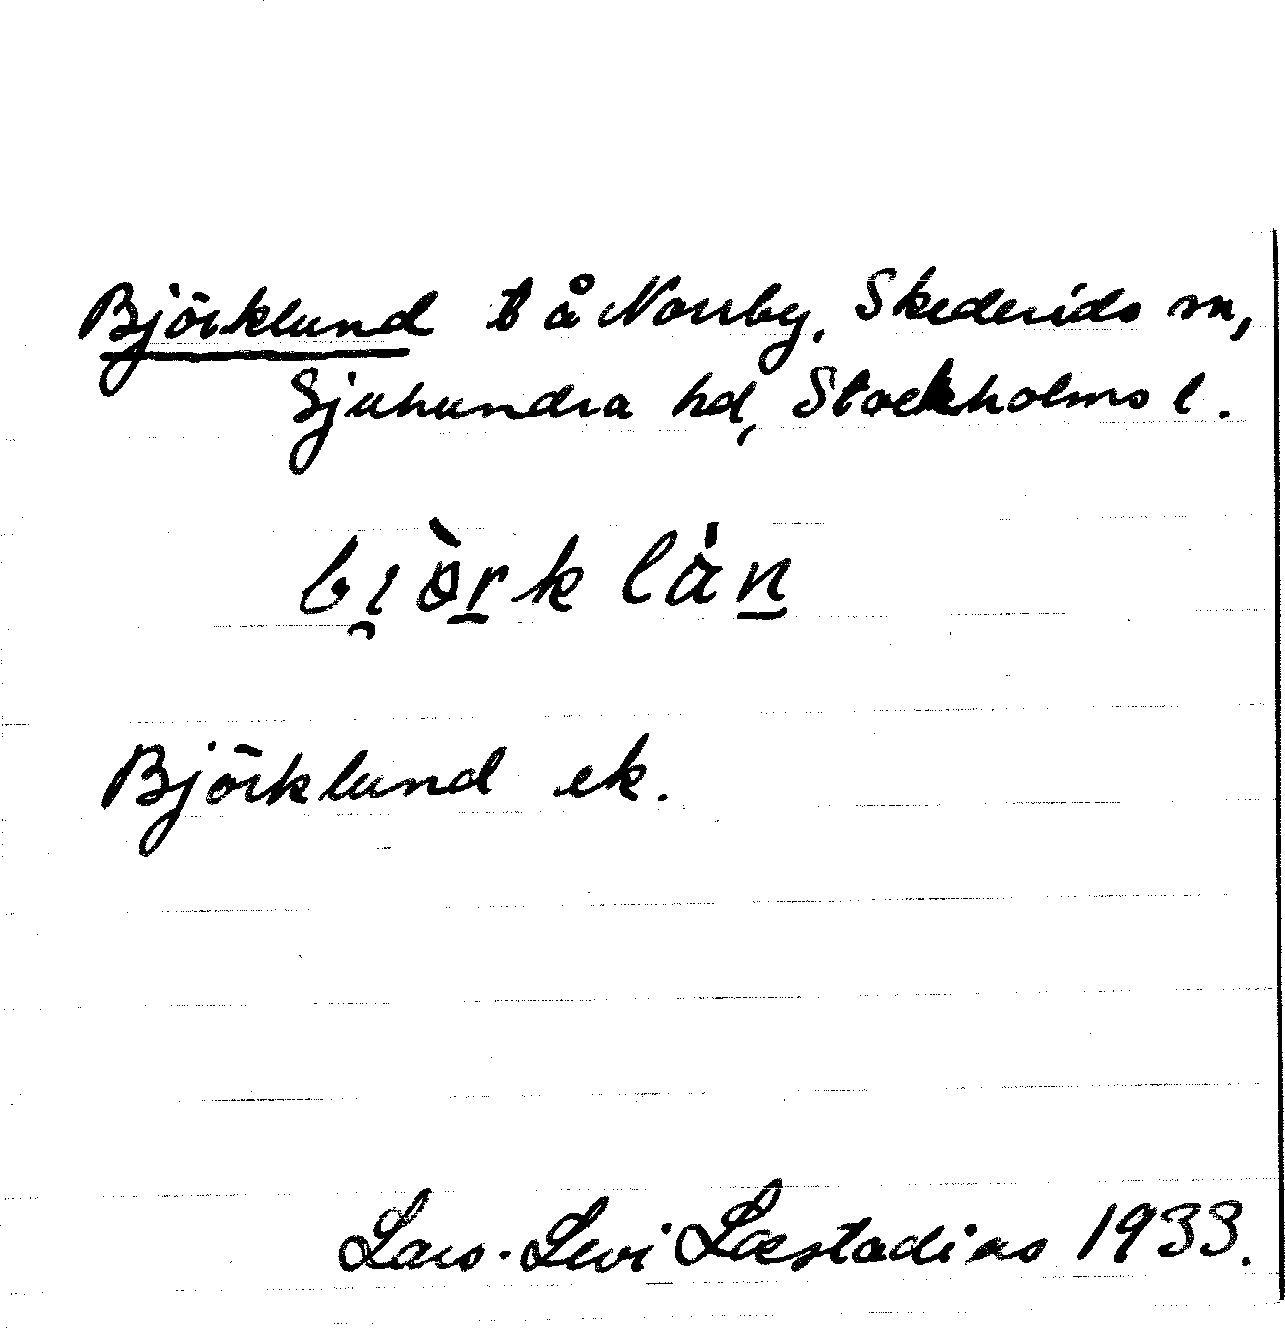 Björklund t å Norrby, Skederids sn,
Sjuhundra hd, Stockholms l.
bi̯ò̱ṟk lȧṉ
Björklund ek.
Lars-Levi Læstadius 1933.